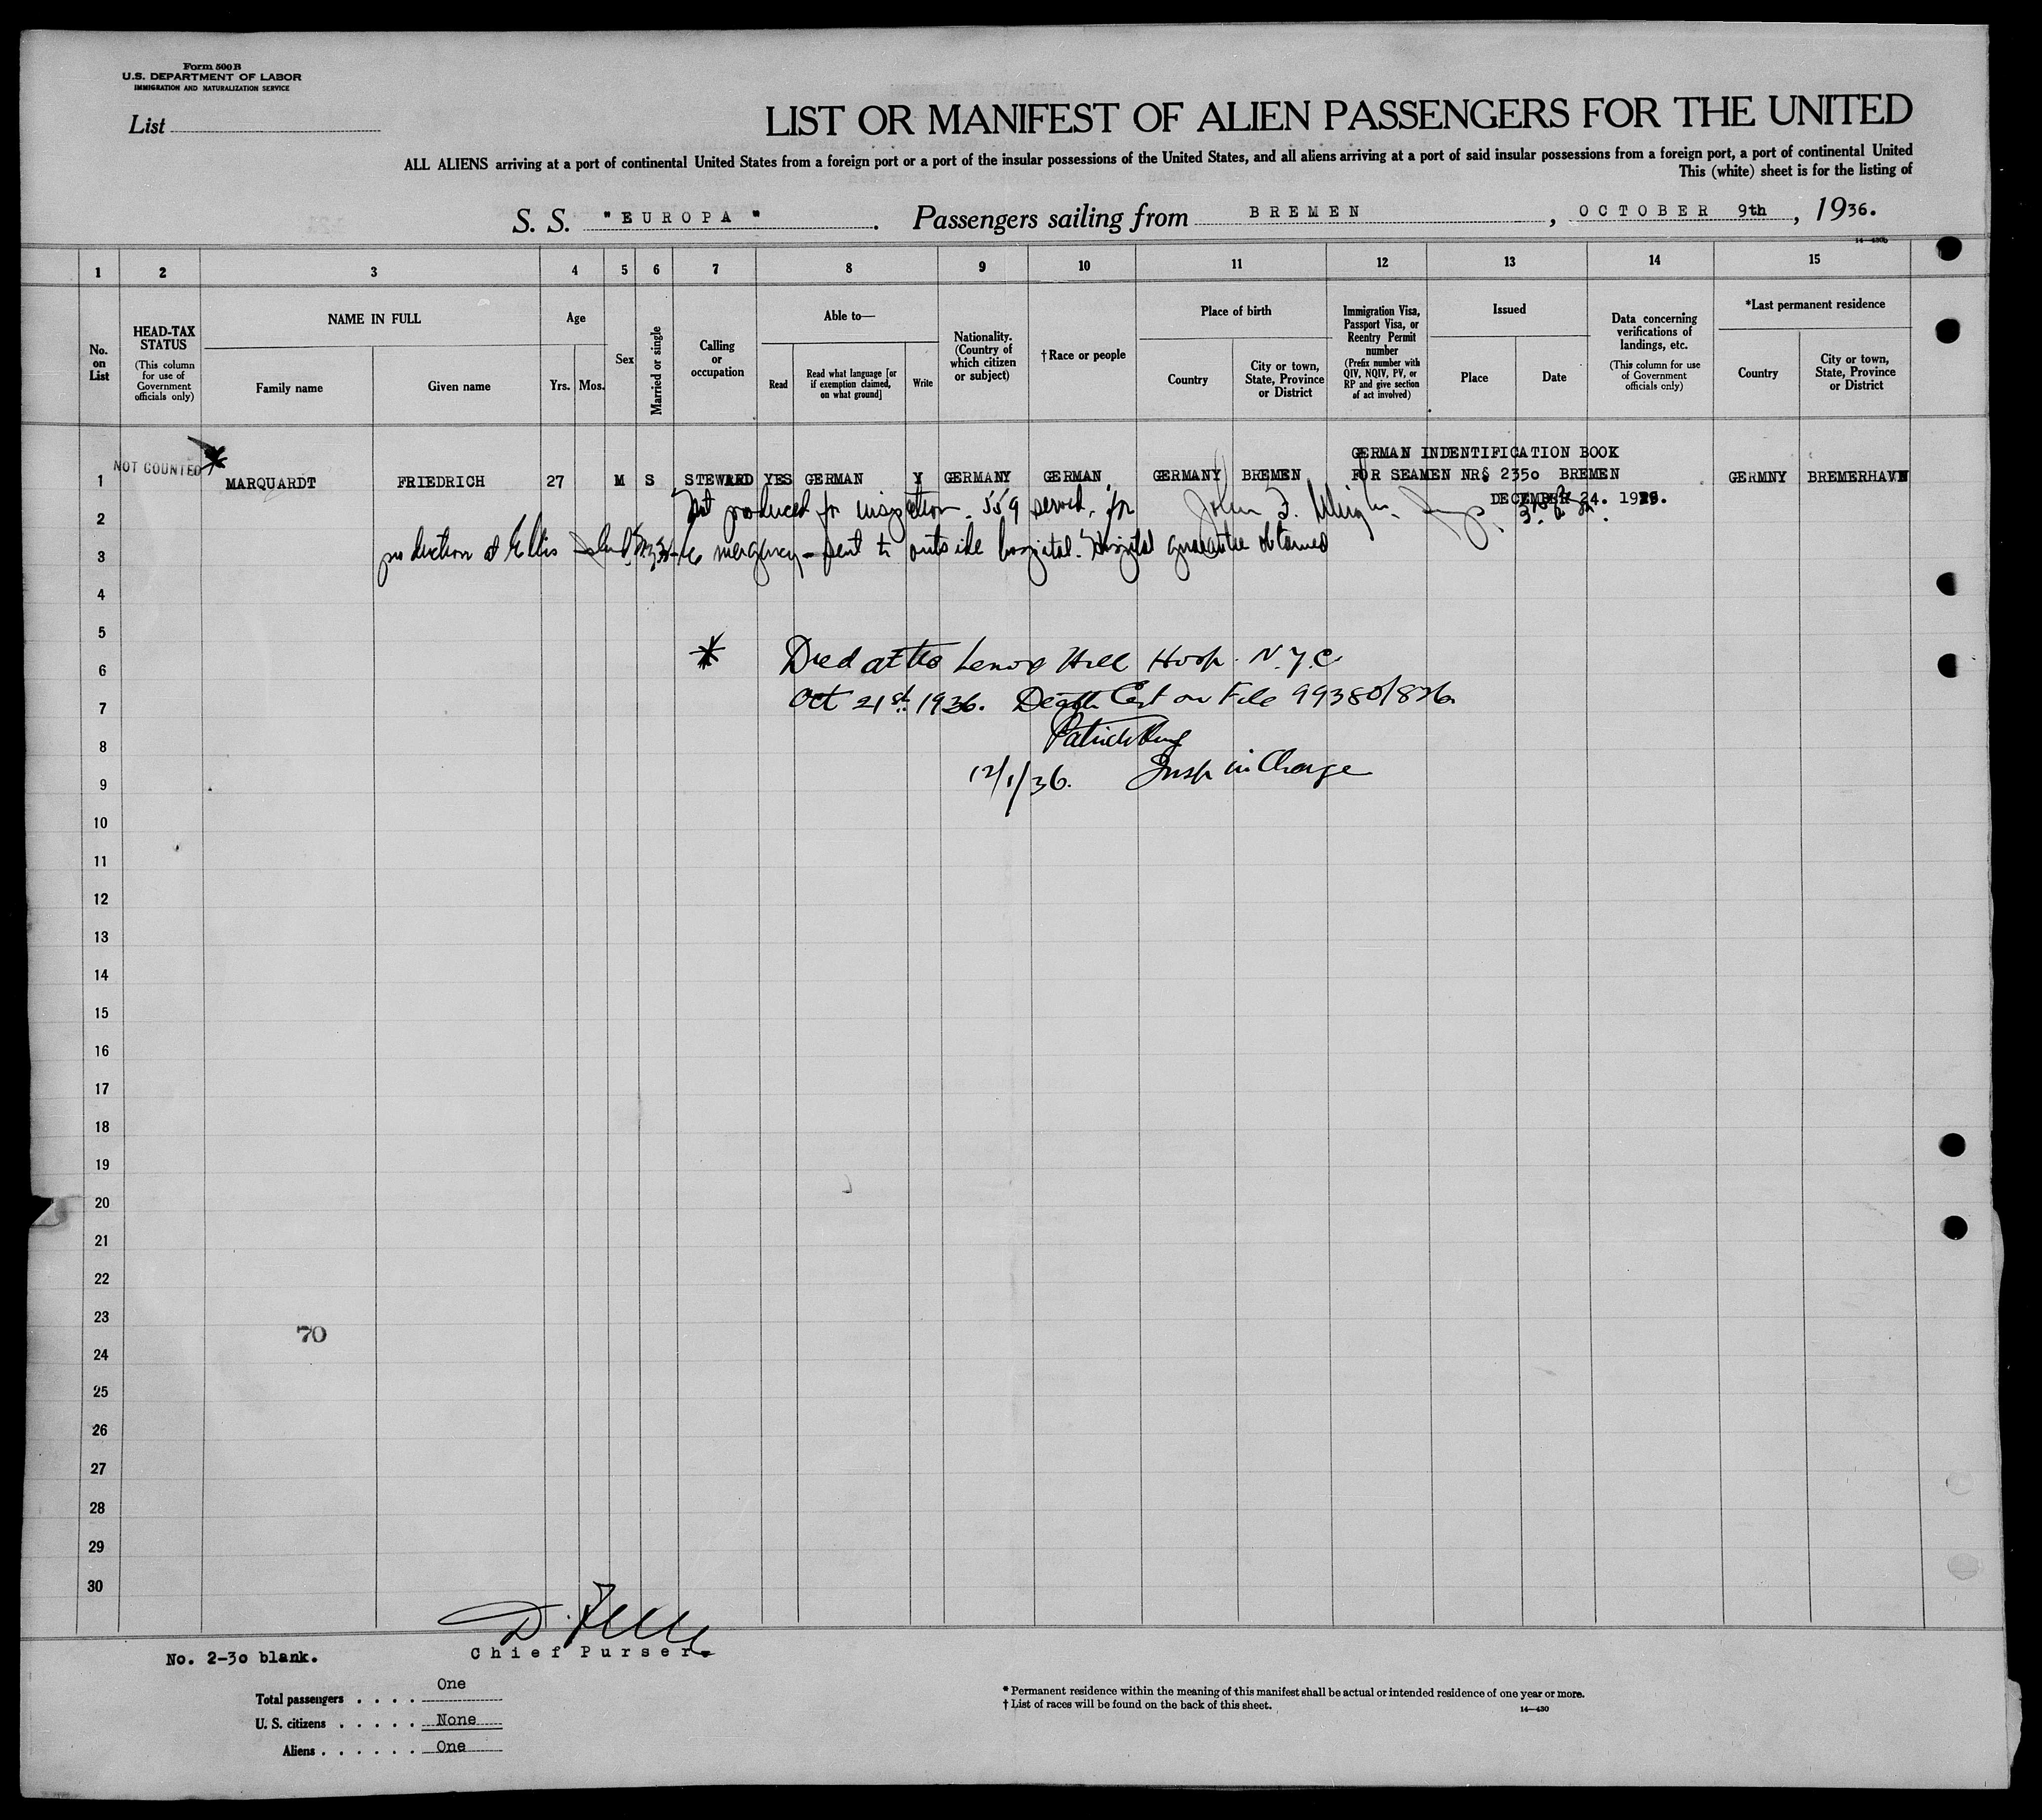 Form 500 B
U.S. DEPARTMENT OF LABOR
IMMIGRATION AND NATURALIZATION SERVICE
List
LIST OR MANIFEST OF ALIEN PASSENGERS FOR THE UNITED
ALL ALIENS arriving at a port of continental United States from a foreign port or a port of the insular possessions of the United States, and all aliens arriving at a port of said insular possessions from a foreign port, a port of continental United
This (white) sheet is for the listing of
S. S. "EUROPA". Passengers sailing from BREMEN, OCTOBER 9th, 1936.
14—430b
1 2 3 4 5 6 7 8 9 10 11 12 13 14 15
No. on List
HEAD-TAX STATUS
(This column for use of Government officials only)
NAME IN FULL
Family name
Given name
Age
Yrs.
Mos.
Sex
Married or single
Calling or occupation
Able to—
Read
Read what language [or if exemption claimed, on what ground]
Write
Nationality. (Country of which citizen or subject)
†Race or people
Place of birth
Country
City or town, State, Province or District
Immigration Visa, Passport Visa, or Reentry Permit number
(Prefix number with QIV, NQIV, PV, or RP and give section of act involved)
Issued
Place
Date
Data concerning verifications of landings, etc.
(This column for use of Government officials only)
*Last permanent residence
Country
City or town, State, Province or District
GERMAN INDENTIFICATION BOOK
NOT COUNTED
1 MARQUARDT FRIEDRICH 27 M S STEWARD YES GERMAN Y GERMANY GERMAN GERMANY BREMEN FOR SEAMEN NR§ 2350 BREMEN GERMNY BREMERHAVEN
DECEMBER 24.
2 Not produced for inspection. 559 served, for John F.
3 production at Ellis Island emergency - sent to outside hospital. Hospital guarantee obtained
4
5
6 * Died at the Lenox Hill Hosp. N.Y.C.
7 Oct 21st 1936. Death Cert on File 99380/826
8 Patrick
9 12/1/36. Insp in Charge
10
11
12
13
14
15
16
17
18
19
20
21
22
23
70
24
25
26
27
28
29
30
Chief Purser.
No. 2-30 blank.
Total passengers . . . . One
U. S. citizens . . . . . None
Aliens . . . . . . One
* Permanent residence within the meaning of this manifest shall be actual or intended residence of one year or more.
† List of races will be found on the back of this sheet.
14—430